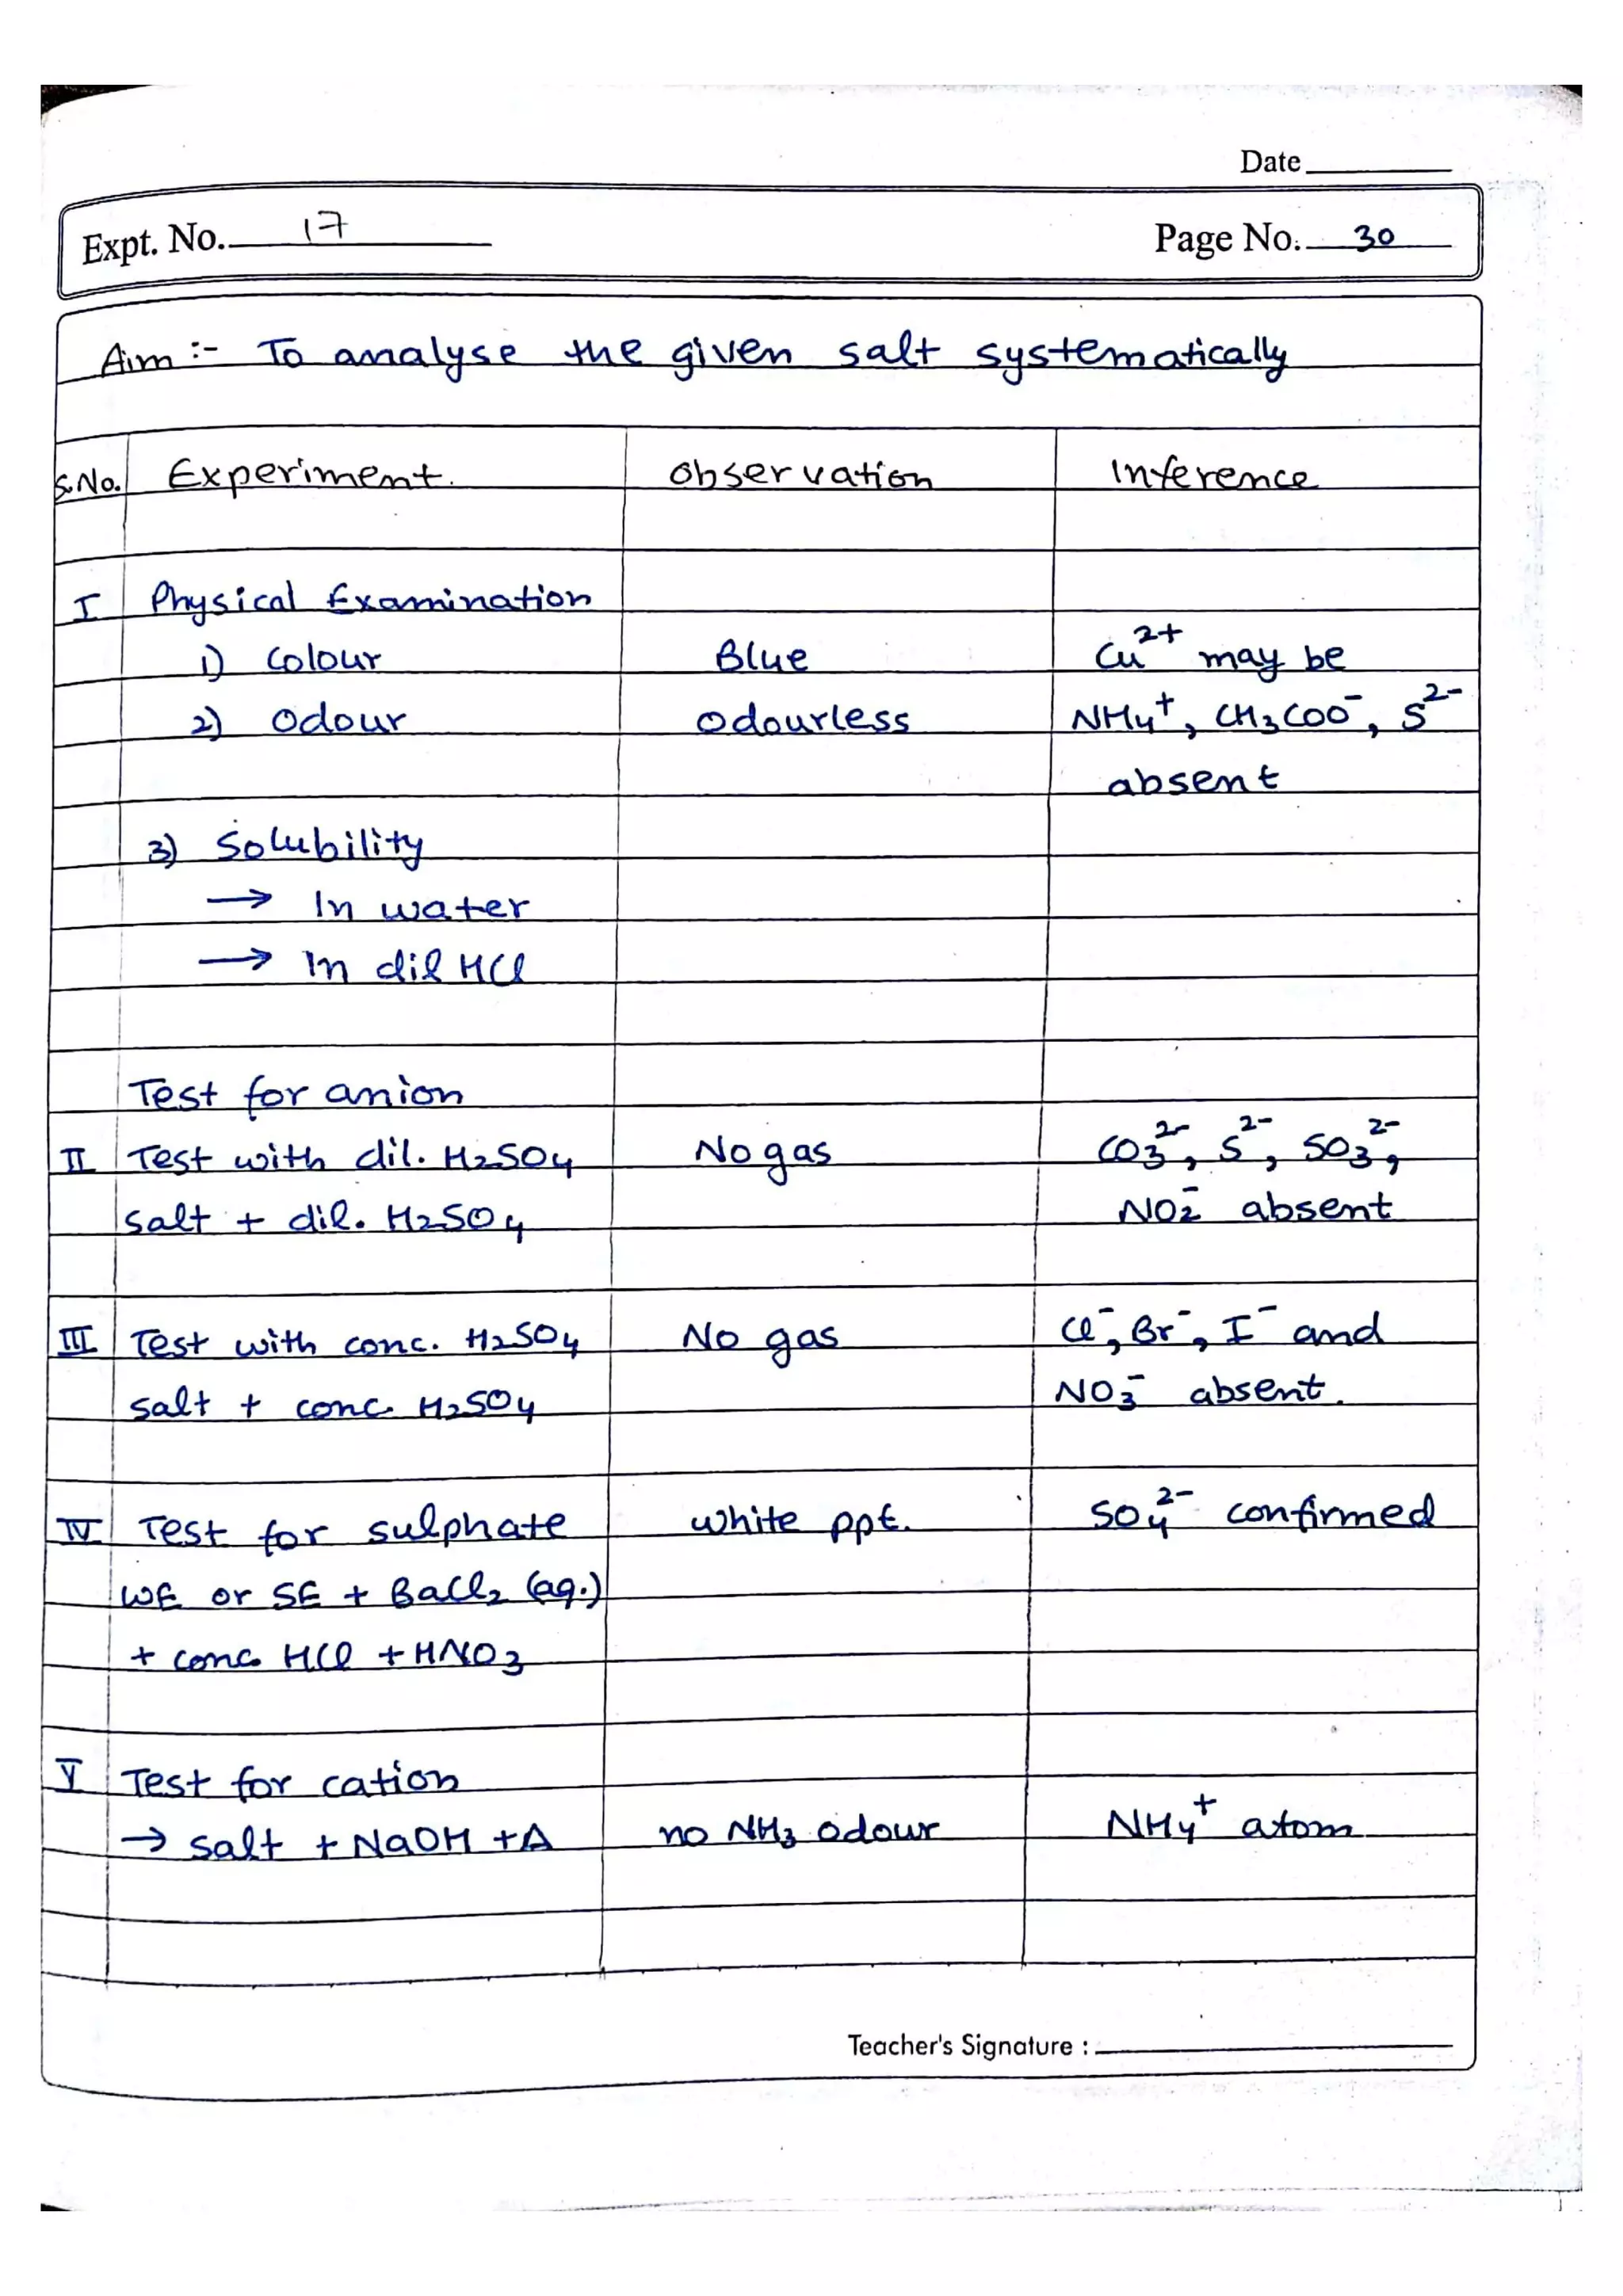 Date
Expt. No. 17 Page No. 30
Aim :- To analyse the given salt systematically
S.No. Experiment. Observation Inference
I Physical Examination
1) Colour Blue Cu²⁺ may be
2) Odour Odourless NH₄⁺, CH₃COO⁻, S²⁻
absent
3) Solubility
→ In water
→ In dil HCl
Test for anion
II Test with dil. H₂SO₄ No gas CO₃²⁻, S²⁻, SO₃²⁻,
salt + dil. H₂SO₄ NO₂⁻ absent
III Test with conc. H₂SO₄ No gas Cl⁻, Br⁻, I⁻ and
salt + conc. H₂SO₄ NO₃⁻ absent.
IV Test for sulphate white ppt. SO₄²⁻ confirmed
WE or SE + BaCl₂ (aq.)
+ conc HCl + HNO₃
V Test for cation
→ salt + NaOH + Δ no NH₃ odour NH₄⁺ atom
Teacher's Signature :